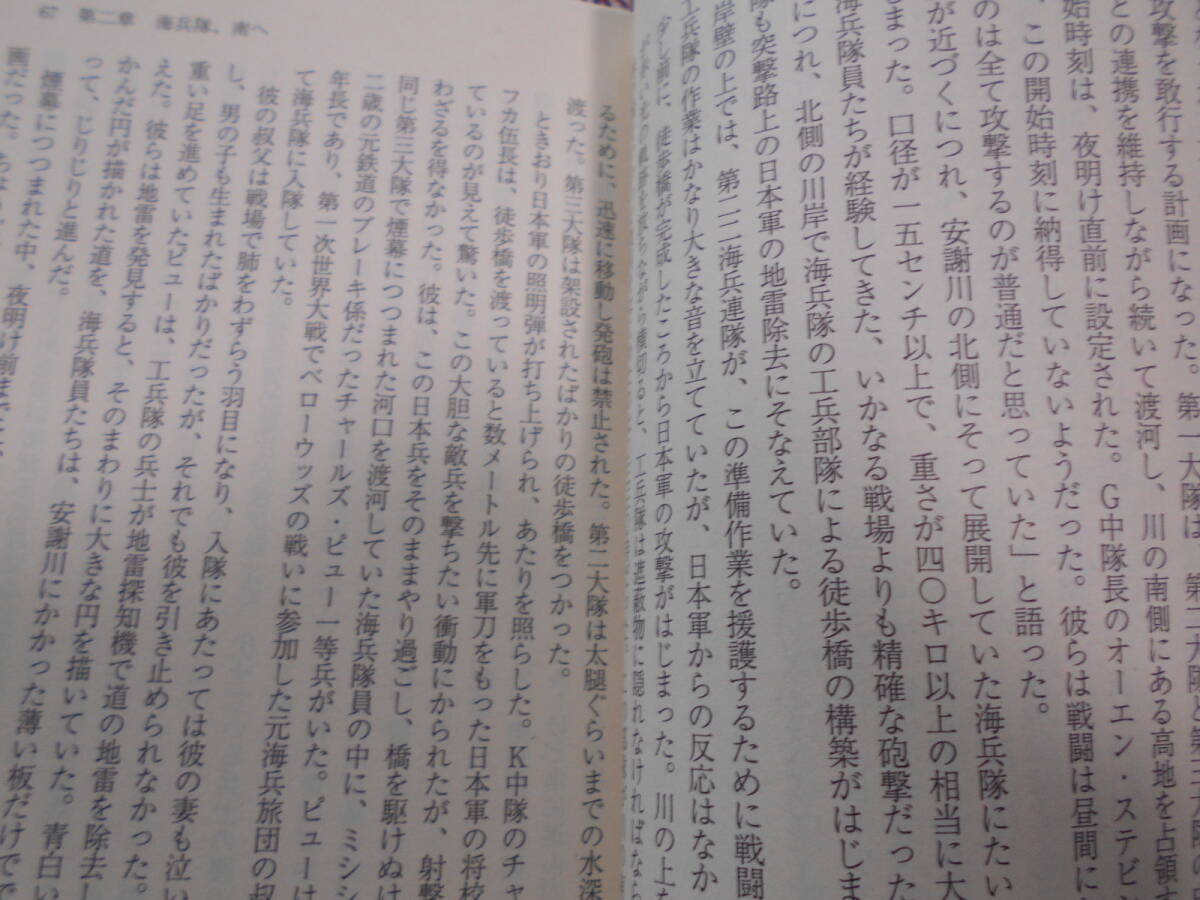 攻撃を敢行する計画になった。第一大隊は、第二大隊と第三
との連携を維持しながら続いて渡河し、川の南側にある高地を占領す
始時刻は、夜明け直前に設定された。G中隊長のオーエン・ステビン
、この開始時刻に納得していないようだった。彼らは戦闘は昼間に
のは全て攻撃するのが普通だと思っていた」と語った。
が近づくにつれ、安謝川の北側にそって展開していた海兵隊にたい
まった。口径が一五センチ以上で、重さが四〇キロ以上の相当に大
海兵隊員たちが経験してきた、いかなる戦場よりも精確な砲撃だった
につれ、北側の川岸で海兵隊の工兵部隊による徒歩橋の構築がはじま
隊も突撃路上の日本軍の地雷除去にそなえていた。
岸壁の上では、第二二海兵連隊が、この準備作業を援護するために戦闘
工兵隊の作業はかなり大きな音を立てていたが、日本軍からの反応はなか
少し前に、徒歩橋が完成したころから日本軍の攻撃がはじまった。川の上を
ながら横切ると、工兵隊は遮蔽物に隠れなければなら
67 第二章 海兵隊、南へ
るために、迅速に移動し発砲は禁止された。第二大隊は太腿ぐらいまでの水深
渡った。第三大隊は架設されたばかりの徒歩橋をつかった。
ときおり日本軍の照明弾が打ち上げられ、あたりを照らした。K中隊のチャ
フカ伍長は、徒歩橋を渡っていると数メートル先に軍刀をもった日本軍の将校
ているのが見えて驚いた。この大胆な敵兵を撃ちたい衝動にかられたが、射撃
わざるを得なかった。彼は、この日本兵をそのままやり過ごし、橋を駆けぬけ
同じ第三大隊で煙幕につつまれた河口を渡河していた海兵隊員の中に、ミシシ
二歳の元鉄道のブレーキ係だったチャールズ・ピュー一等兵がいた。ピューは
年長であり、第一次世界大戦でベローウッズの戦いに参加した元海兵旅団の叔
て海兵隊に入隊していた。
彼の叔父は戦場で肺をわずらう羽目になり、入隊にあたっては彼の妻も泣い
し、男の子も生まれたばかりだったが、それでも彼を引き止められなかった。
重い足を進めていたピューは、工兵隊の兵士が地雷探知機で道の地雷を除去し
えた。彼らは地雷を発見すると、そのまわりに大きな円を描いていた。青白い
かんだ円が描かれた道を、海兵隊員たちは、安謝川にかかった薄い板だけでで
って、じりじりと進んだ。
煙幕につつまれた中、夜明け前までに
画だった。